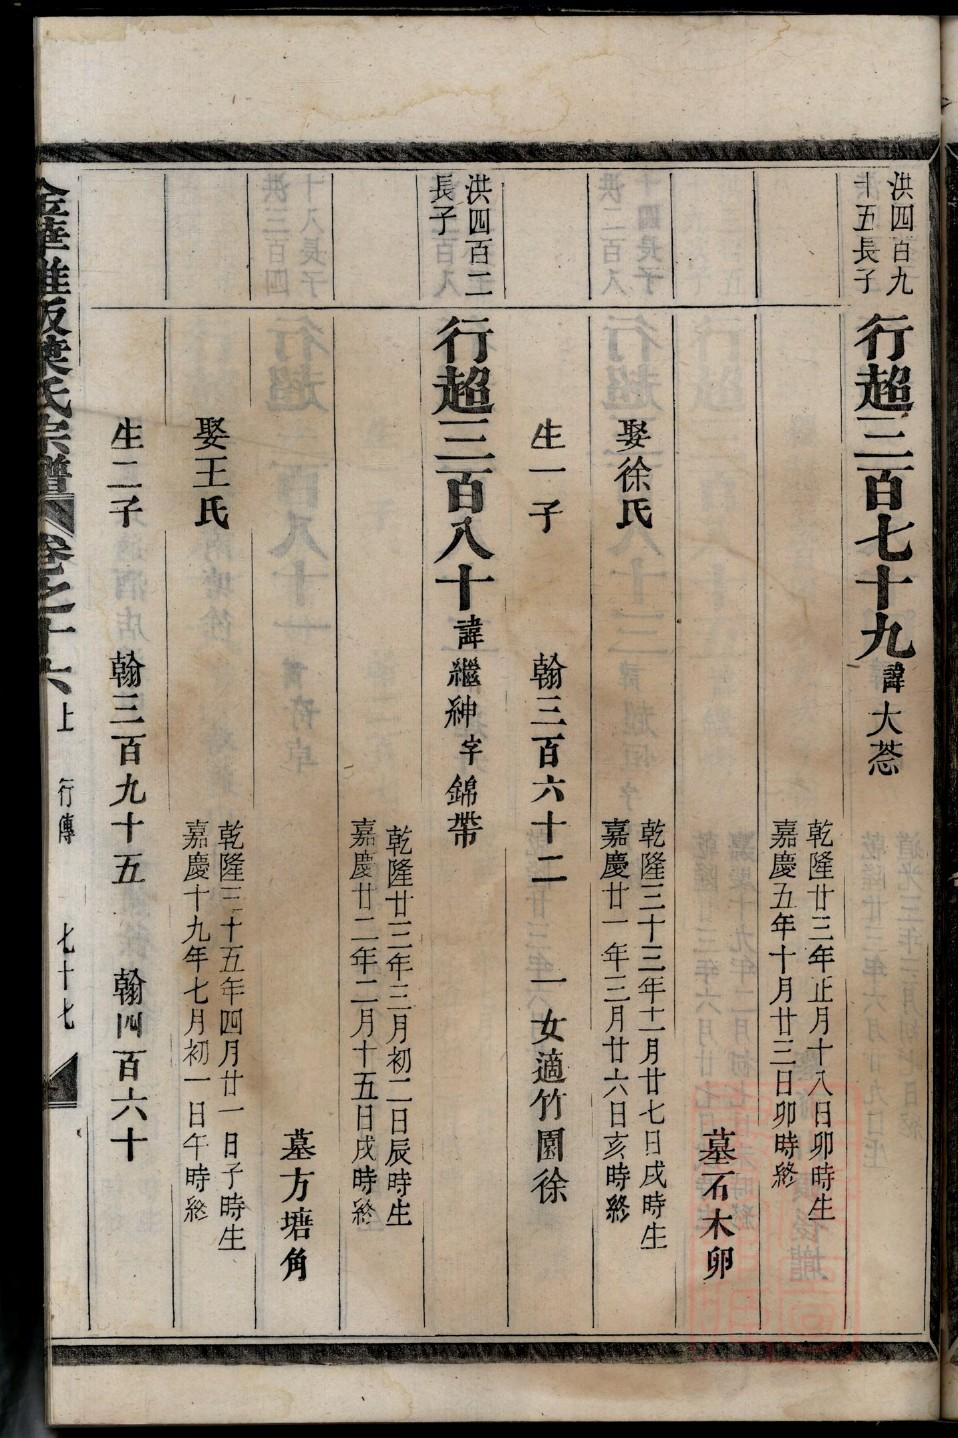 洪四百九
十五長子
行超三百七十九 諱大莶
乾隆廿三年正月十八日卯時生
嘉慶五年十月廿三日卯時終
墓石木卯
娶徐氏
乾隆三十三年十二月廿七日戌時生
嘉慶廿一年三月廿六日亥時終
生一子 翰三百六十二 一女適竹園徐
洪四百二
長子
行超三百八十 諱繼紳 字錦帶
乾隆廿三年三月初二日辰時生
嘉慶廿二年二月十五日戌時終
墓方塘角
娶王氏
乾隆三十五年四月廿一日子時生
嘉慶十九年七月初一日午時終
生二子 翰三百九十五 翰四百六十
金華雅畈葉氏宗譜 卷之十六上 行傳 七十七